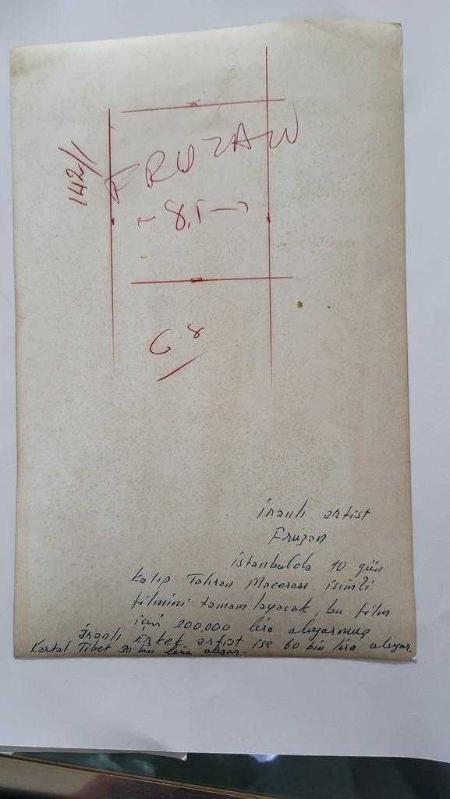 142/1
FRUZAN
~ 8,5 →
6.8
İranlı artist
Fruzan
İstanbulda 10 gün
kalıp Tahran Macerası isimli
filmini tamamlayacak, bu film
için 200,000 lira alıyormuş
İranlı Erkek artist ise 60 bin lira alıyor.
Kartal Tibet 30 bin lira alıyor.